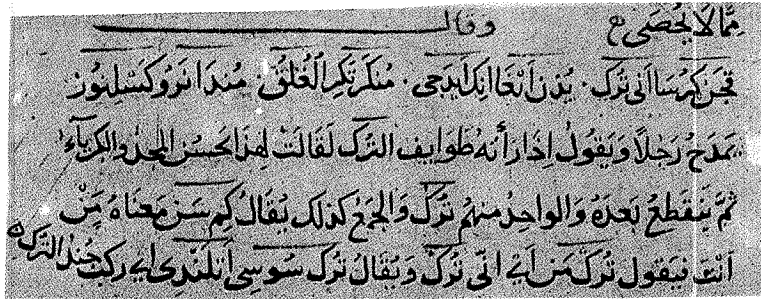 مِمَّا لَا يُحْصَى ع وقال
قَجَنْ كُرْسَا اَنِى تُرْك . بُذُنْ اَنْغَا اَنِكْ اَيْدَجِى . مُنْكَرْ تَكِرْ اُلُغْلُقْ . مُنْدَا نَرُو كَسْلِنُورْ
يَمدَحُ رَجُلاً وَيَقُولُ اِذَا رَأَتهُ طَوايِف التُرك لَقَالَتْ لِهَذَا يَحسُنُ المجدُ والكِبرِيَآءُ
ثُمَّ يَنقَطِعُ بَعدَهُ وَالواحِدُ منهُم تُرْكْ وَالجَمعُ كَذلِكَ يُقَالُ كِمْ سَنْ مَعنَاهُ مَنْ
اَنتَ فَيَقُولُ تُرْكْ مَنْ اَىْ انّى تُركٌ وَيُقَالُ تُركْ سُوسِى اَتْلَنْدِى اىْ رَكِبَ جُندُ التُرك